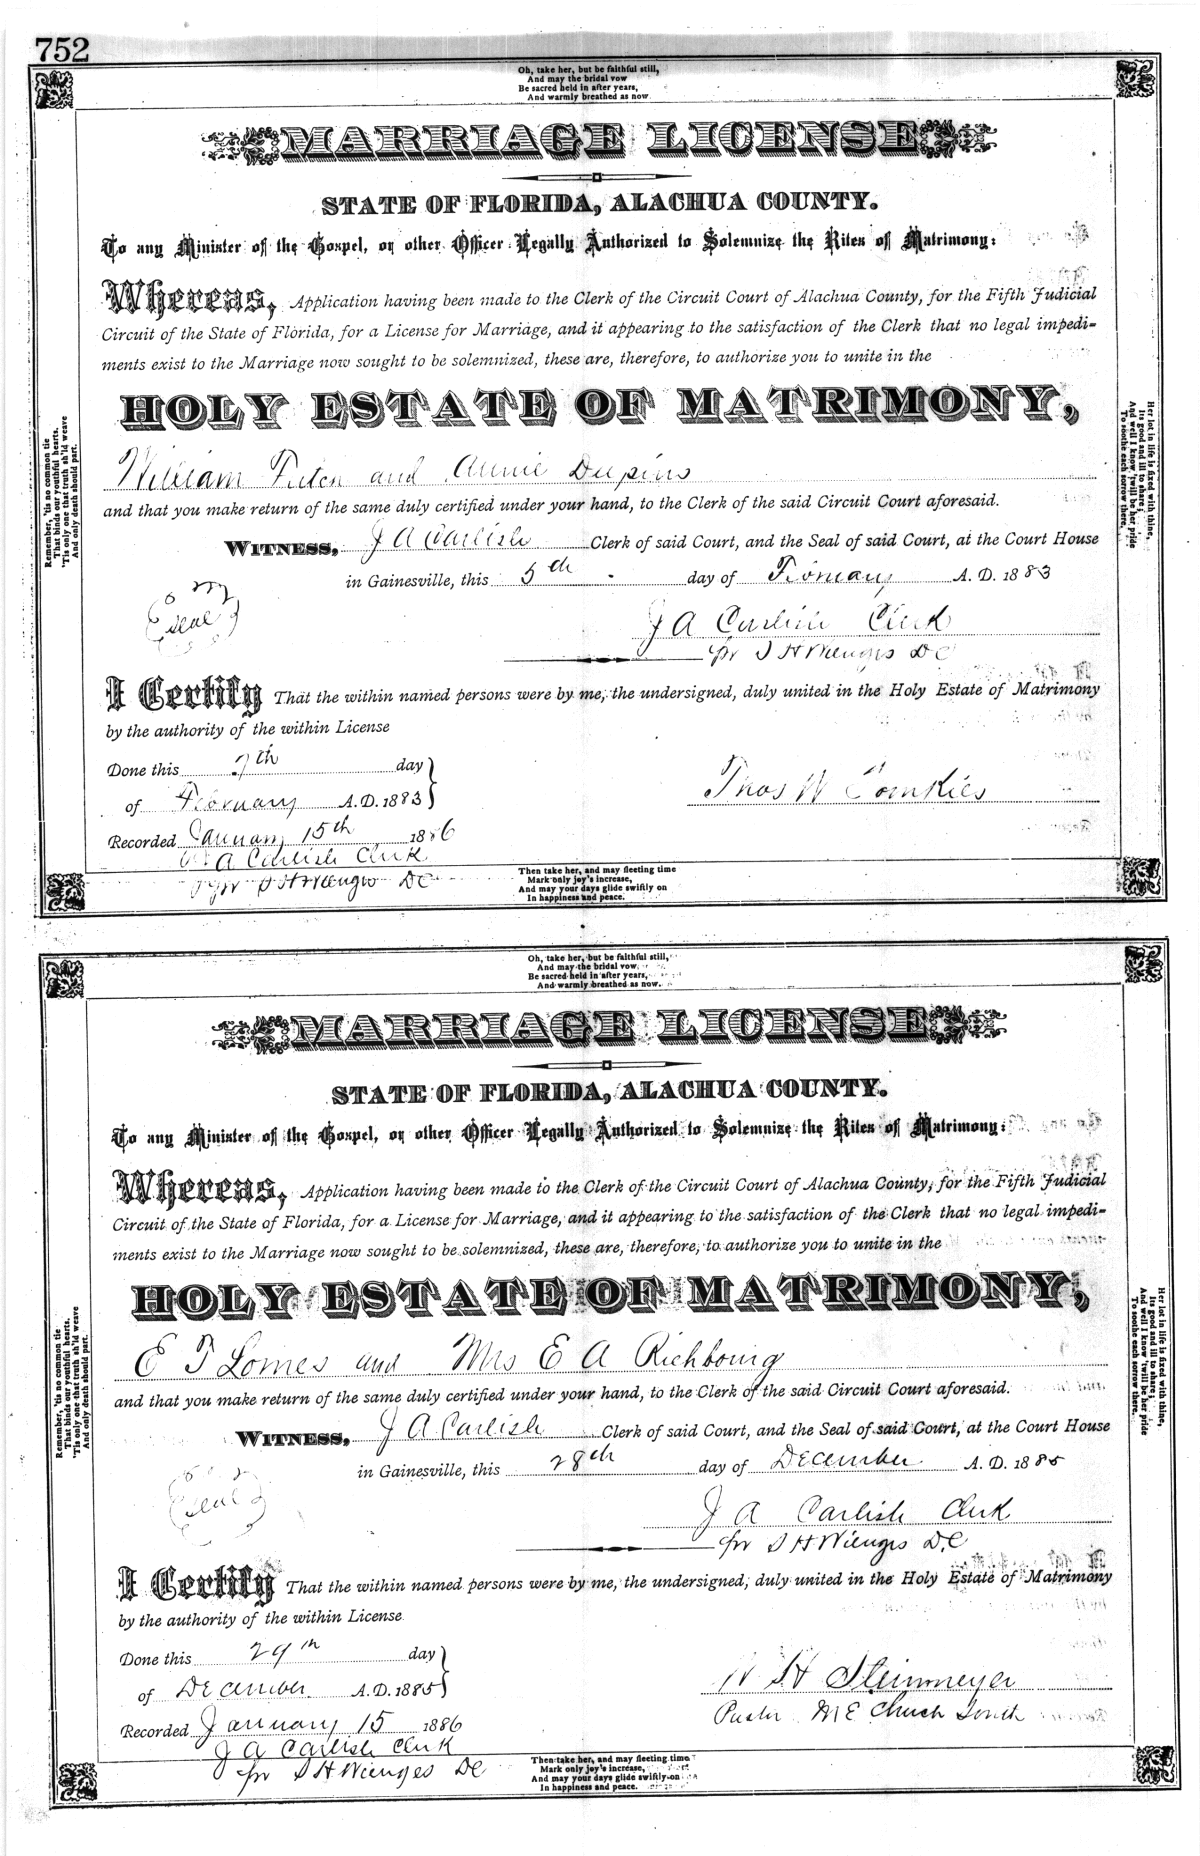 752
Oh, take her, but be faithful still,
And may the bridal vow
Be sacred held in after years,
And warmly breathed as now.
MARRIAGE LICENSE
STATE OF FLORIDA, ALACHUA COUNTY.
To any Minister of the Gospel, or other Officer Legally Authorized to Solemnize the Rites of Matrimony:
Whereas, Application having been made to the Clerk of the Circuit Court of Alachua County, for the Fifth Judicial
Circuit of the State of Florida, for a License for Marriage, and it appearing to the satisfaction of the Clerk that no legal impedi-
ments exist to the Marriage now sought to be solemnized, these are, therefore, to authorize you to unite in the
HOLY ESTATE OF MATRIMONY,
William and Annie
and that you make return of the same duly certified under your hand, to the Clerk of the said Circuit Court aforesaid.
WITNESS, J A Carlisle Clerk of said Court, and the Seal of said Court, at the Court House
in Gainesville, this 5th day of February A. D. 1883
seal
J A Carlisle Clerk
pr S H Wienges DC
I Certify That the within named persons were by me, the undersigned, duly united in the Holy Estate of Matrimony
by the authority of the within License
Done this 7th day
of February A. D. 1883
Thos W Tomkies
Recorded January 15th 1886
J A Carlisle Clerk
pr S H Wienges DC
Remember, 'tis no common tie
That binds our youthful hearts,
'Tis only one that truth sh'ld weave
And only death should part.
Her lot in life is fixed with thine,
Its good and ill to share;
And well I know 'twill be her pride
To soothe each sorrow there.
Then take her, and may fleeting time
Mark only joy's increase,
And may your days glide swiftly on
In happiness and peace.
Oh, take her, but be faithful still,
And may the bridal vow
Be sacred held in after years,
And warmly breathed as now.
MARRIAGE LICENSE
STATE OF FLORIDA, ALACHUA COUNTY.
To any Minister of the Gospel, or other Officer Legally Authorized to Solemnize the Rites of Matrimony:
Whereas, Application having been made to the Clerk of the Circuit Court of Alachua County, for the Fifth Judicial
Circuit of the State of Florida, for a License for Marriage, and it appearing to the satisfaction of the Clerk that no legal impedi-
ments exist to the Marriage now sought to be solemnized, these are, therefore, to authorize you to unite in the
HOLY ESTATE OF MATRIMONY,
E T Lomes and Mrs E A Richbourg
and that you make return of the same duly certified under your hand, to the Clerk of the said Circuit Court aforesaid.
WITNESS, J A Carlisle Clerk of said Court, and the Seal of said Court, at the Court House
in Gainesville, this 28th day of December A. D. 1885
seal
J A Carlisle Clerk
pr S H Wienges D.C
I Certify That the within named persons were by me, the undersigned, duly united in the Holy Estate of Matrimony
by the authority of the within License
Done this 29th day
of December A. D. 1885
W H Steinmeyer
Pastor M E Church South
Recorded January 15 1886
J A Carlisle Clerk
pr S H Wienges DC
Remember, 'tis no common tie
That binds our youthful hearts,
'Tis only one that truth sh'ld weave
And only death should part.
Her lot in life is fixed with thine,
Its good and ill to share;
And well I know 'twill be her pride
To soothe each sorrow there.
Then take her, and may fleeting time
Mark only joy's increase,
And may your days glide swiftly on
In happiness and peace.